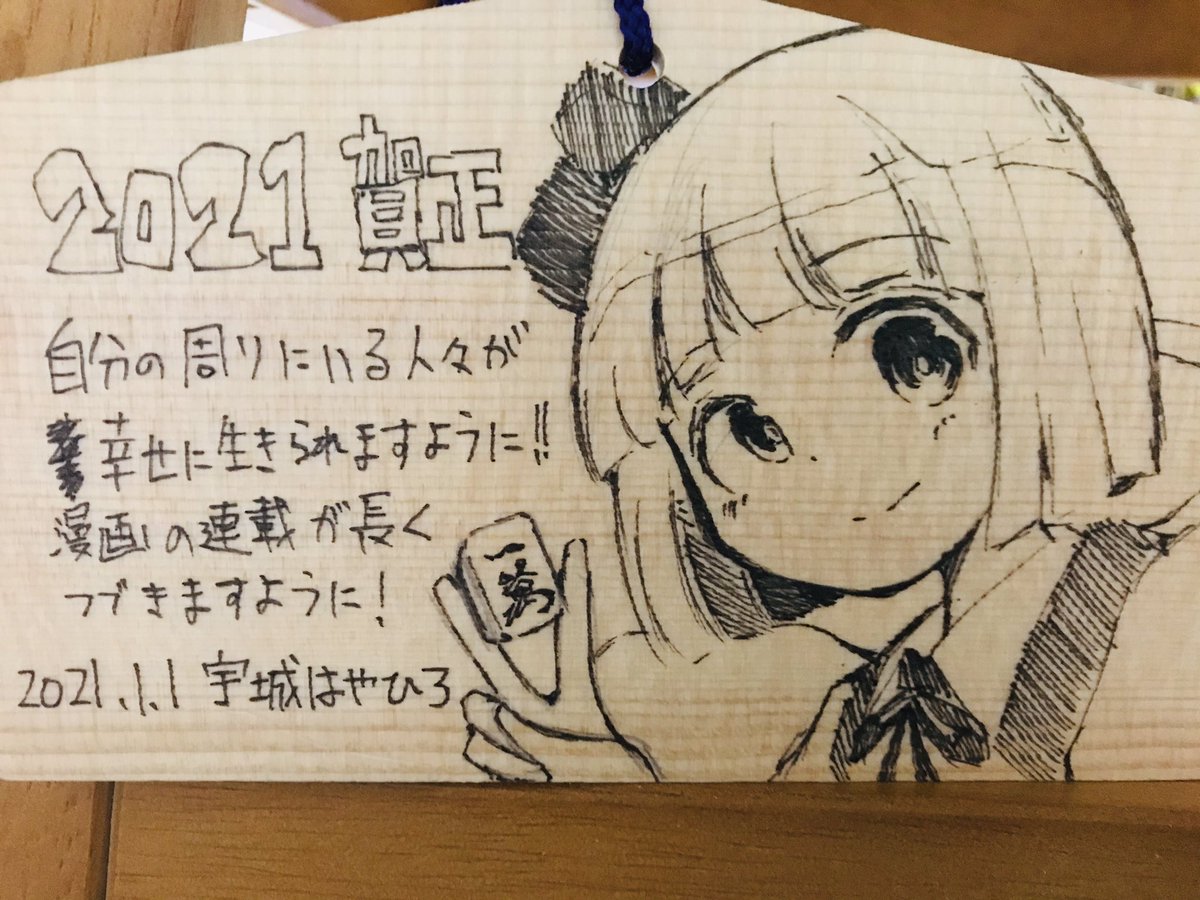 2021 賀正
自分の周りにいる人々が
幸せに生きられますように!!
漫画の連載が長く
つづきますように!
2021.1.1 宇城はやひろ
一萬